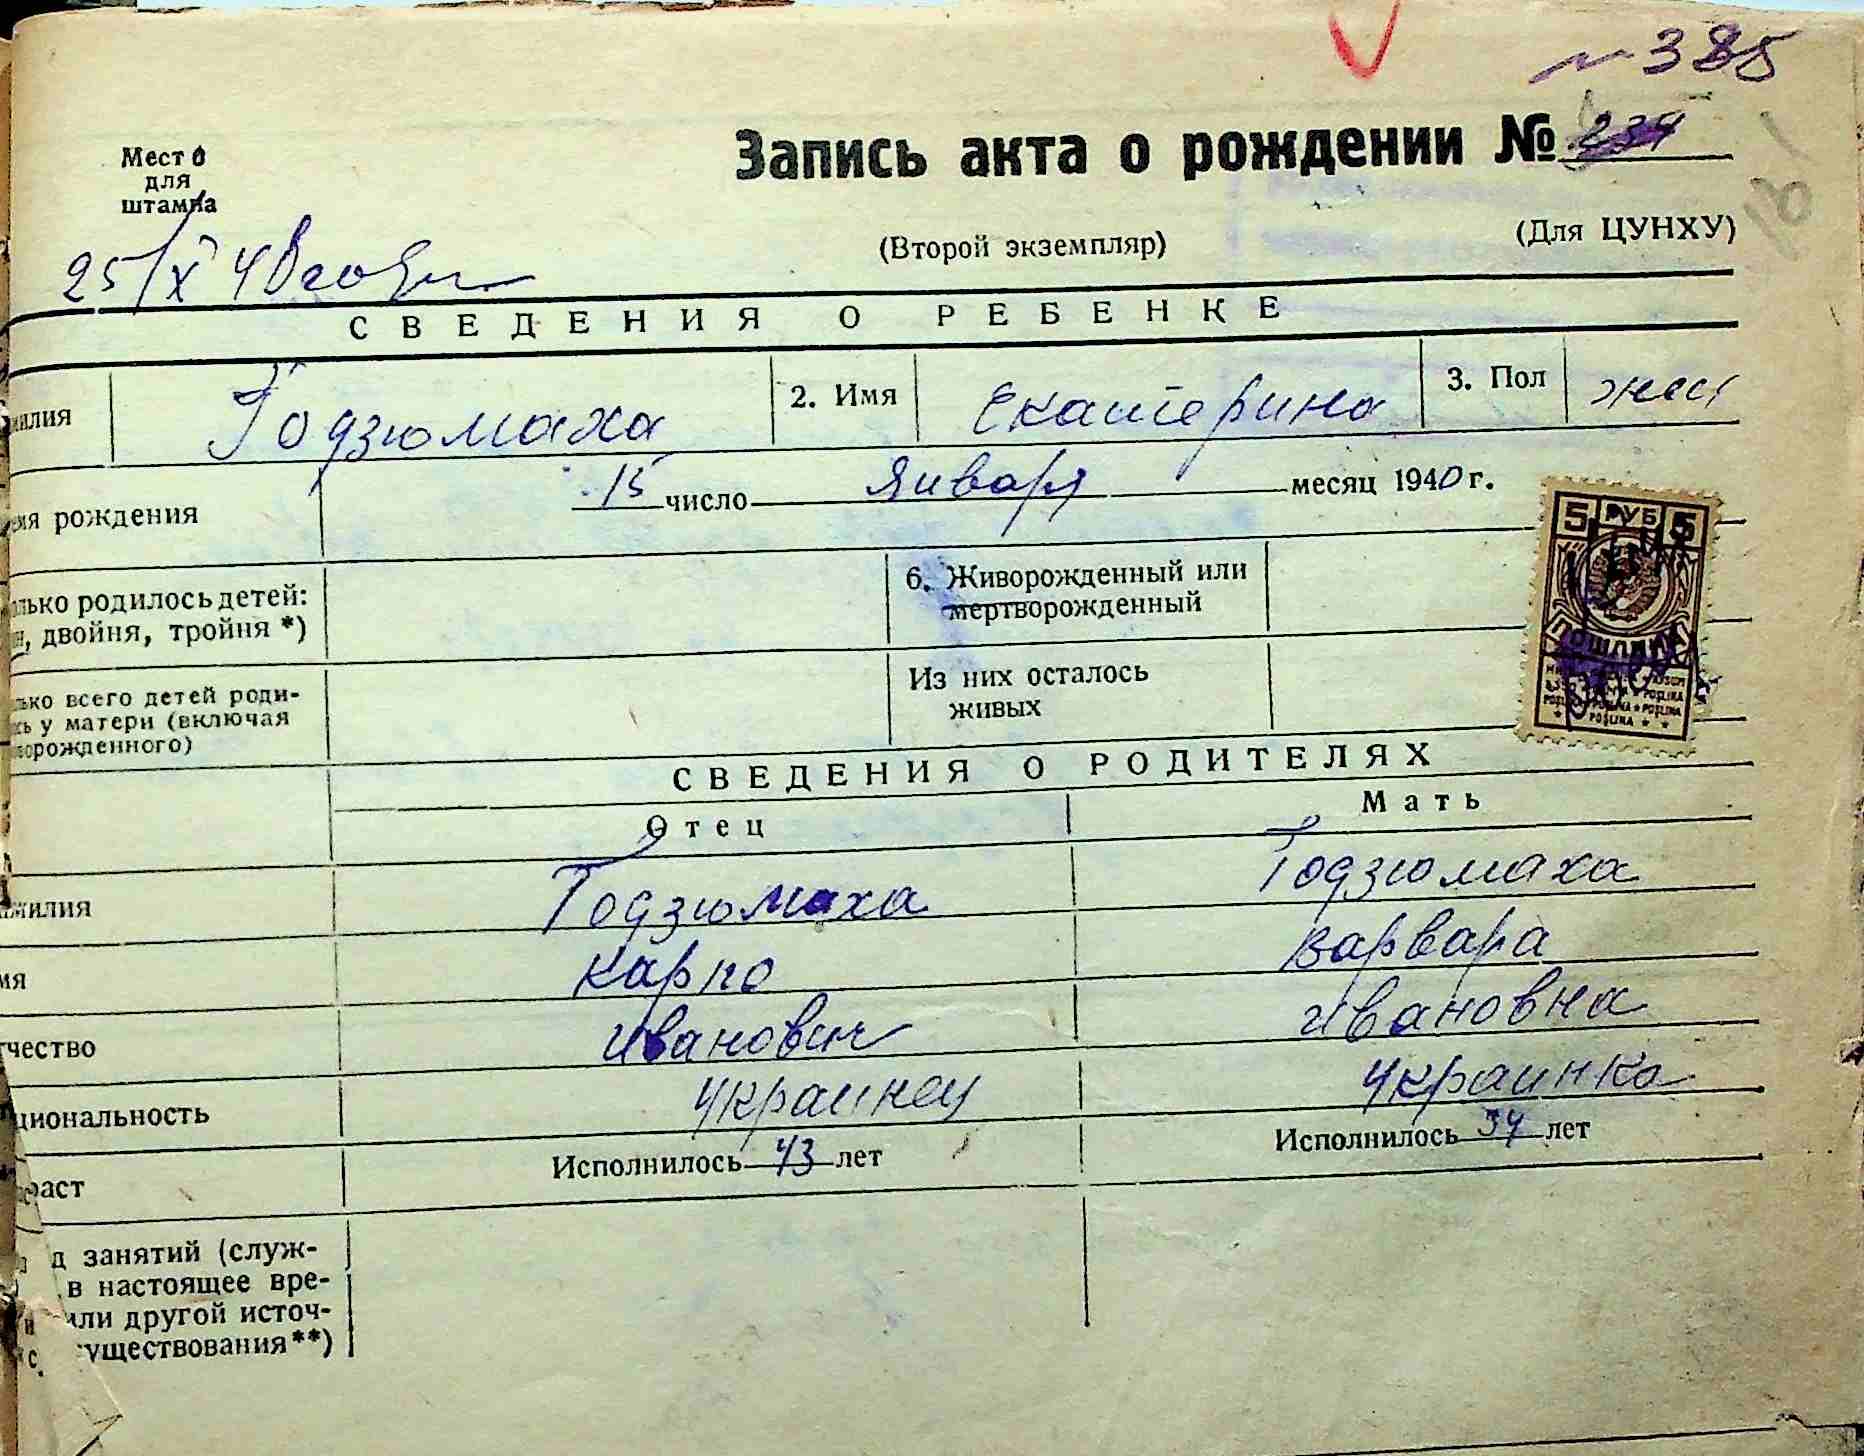 № 385
Запись акта о рождении № 234
Место
для
штампа
(Второй экземпляр)
(Для ЦУНХУ)
25/X 40 года
СВЕДЕНИЯ О РЕБЕНКЕ
милия Годзюмаха 2. Имя Екатерина 3. Пол жен
емя рождения 15 число января месяц 1940 г.
олько родилось детей:
н, двойня, тройня *)
6. Живорожденный или
мертворожденный
лько всего детей роди-
сь у матери (включая
ворожденного)
Из них осталось
живых
5 РУБ 5
ПОШЛИНА
СВЕДЕНИЯ О РОДИТЕЛЯХ
Отец Мать
амилия Годзюмаха Годзюмаха
мя Карпо Варвара
тчество Иванович Ивановна
циональность Украинец Украинка
раст Исполнилось 43 лет Исполнилось 34 лет
д занятий (служ-
в настоящее вре-
или другой источ-
существования**)